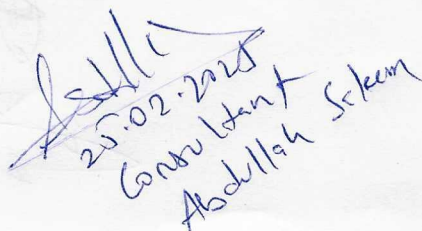 25.02.2025
Consultant
Abdullah Saleem